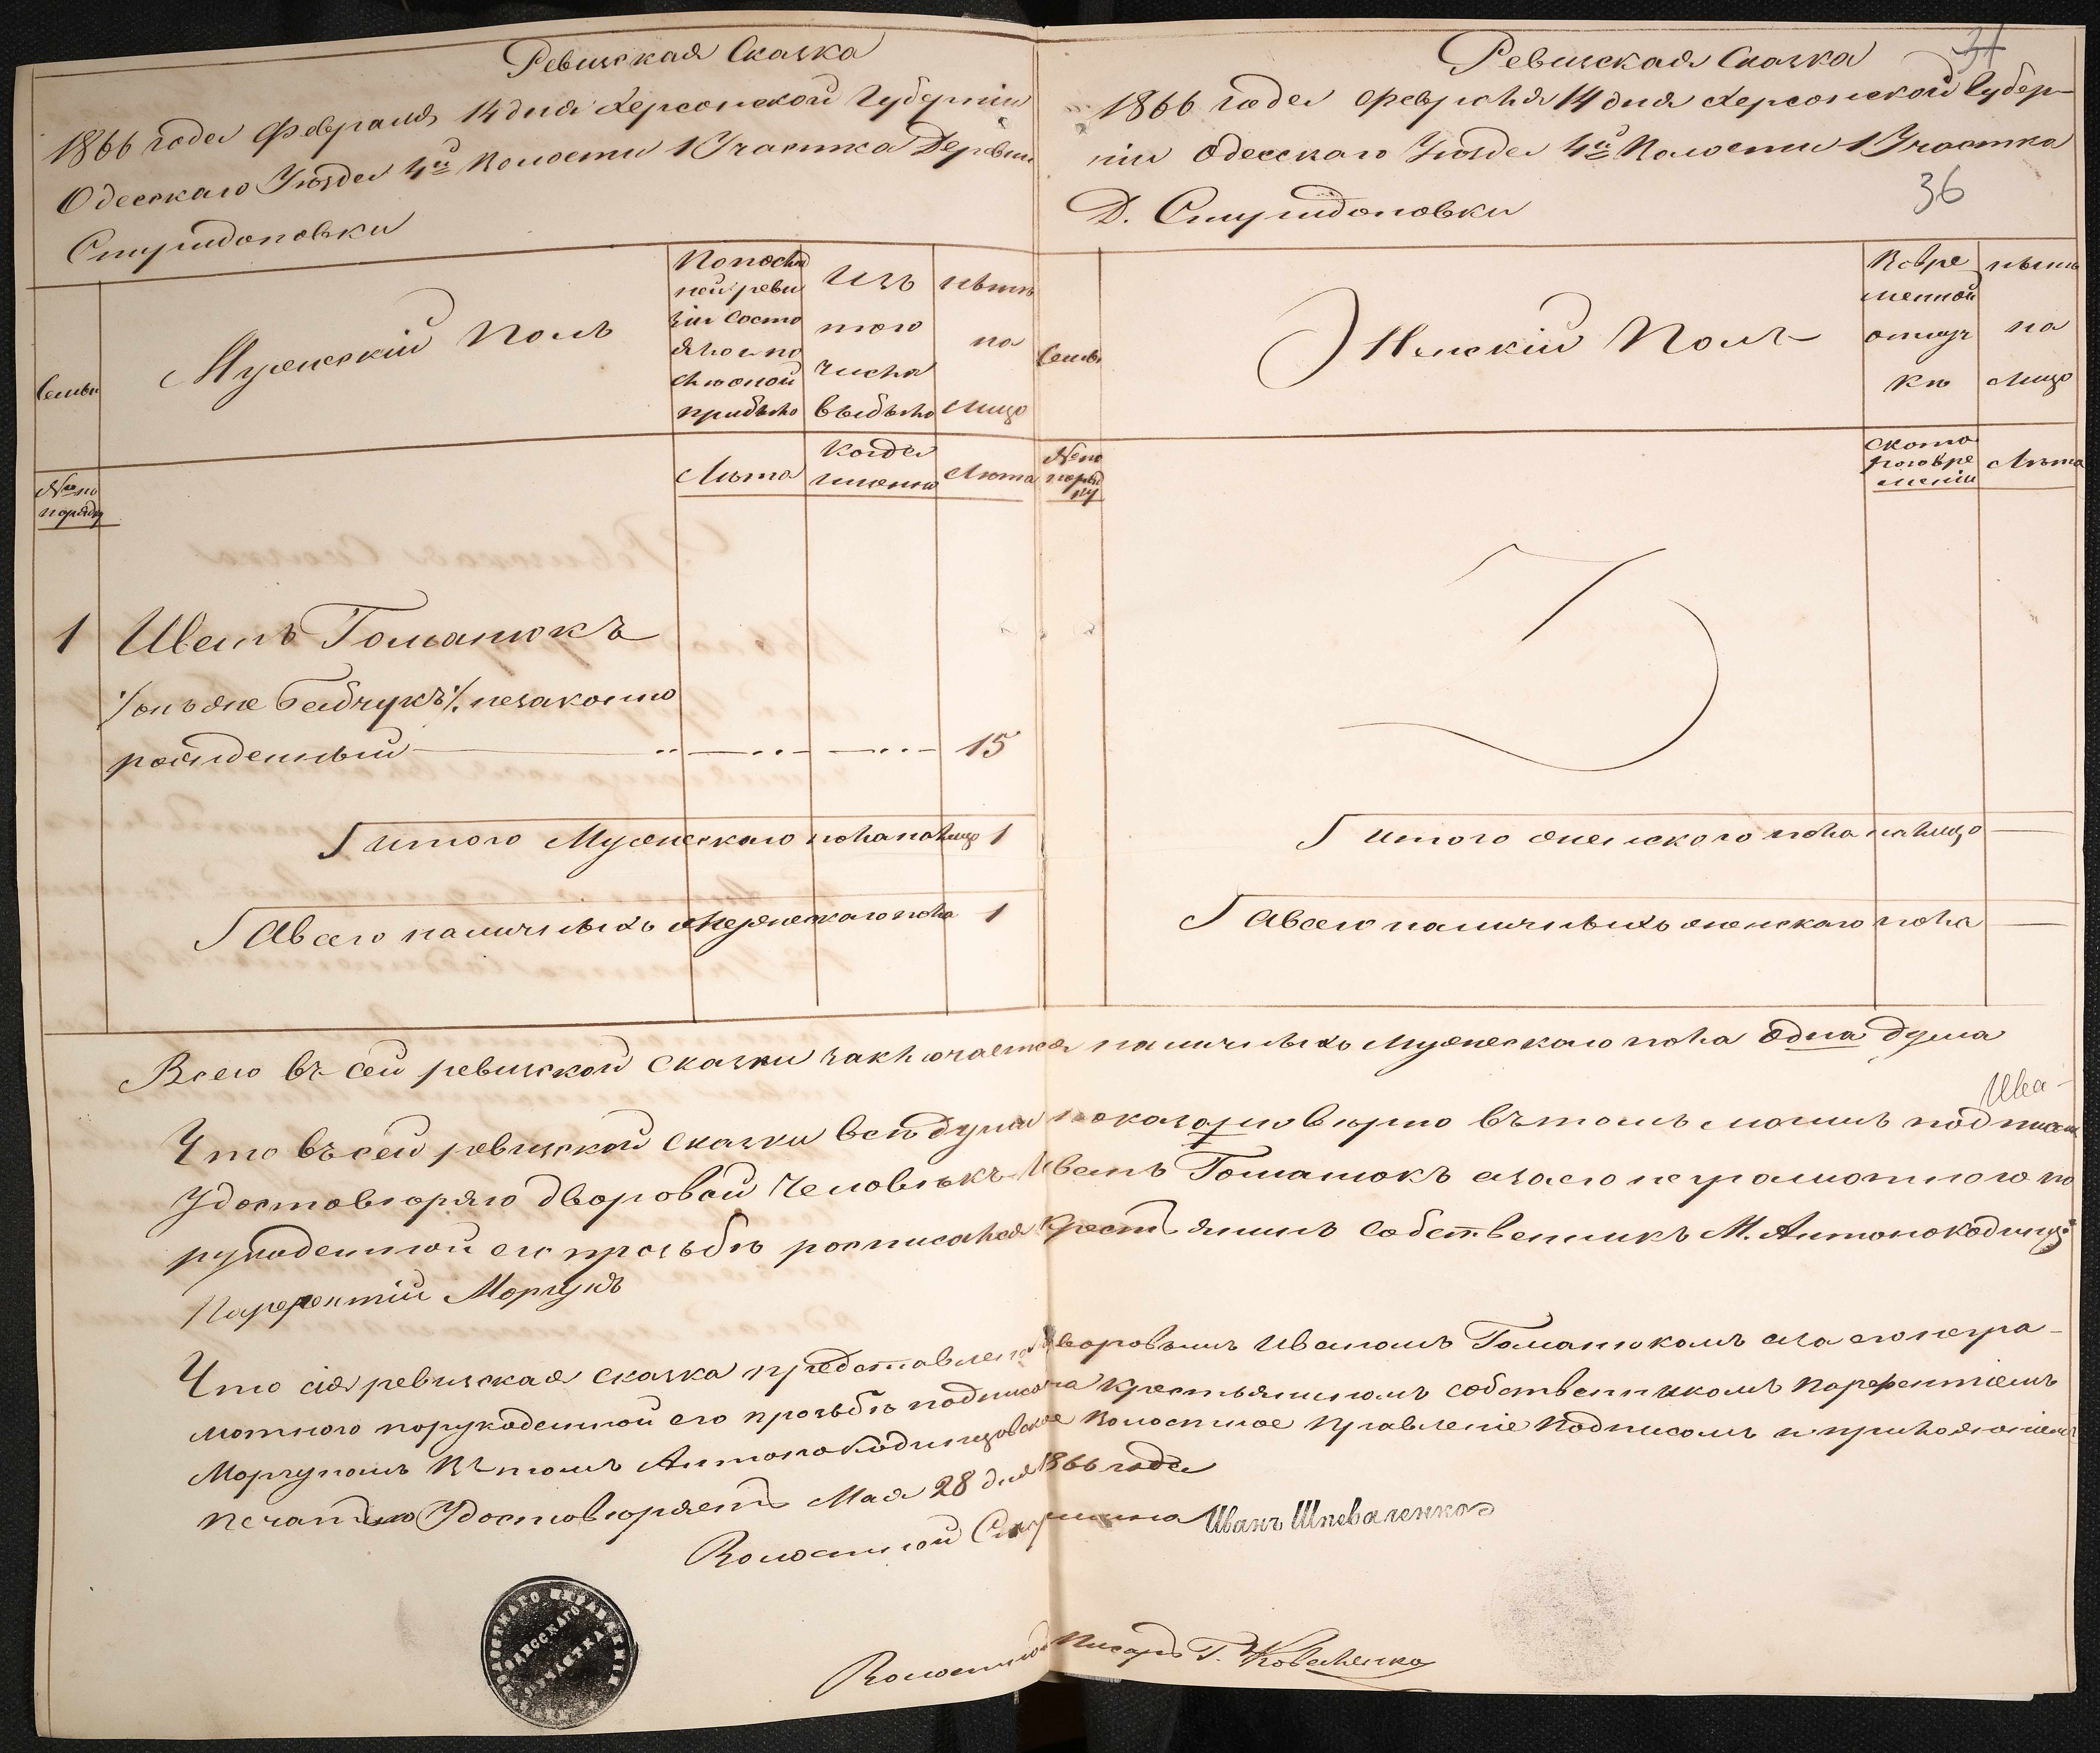 Ревизская Сказка
1866 года Февраля 14 дня Херсонской Губерніи
Одесскаго Уѣзда 4й Волости 1 Участка Деревни
Спиридоновки
Семьи
Мужескій Полъ
По послѣд
ней реви
зіи состо
яло и по
слѣ оной
прибыло
Изъ
того
числа
выбыло
Нынѣ
на
лицо
№ по
порядку
Лѣта
Когда
именно
Лѣта
1
Иванъ Гоманюкъ
/онъ же Бабчукъ/ незаконно
рожденный
15
Итого Мужескаго пола на лицо 1
А всего наличныхъ мужескаго пола 1
Ревизская Сказка
31
1866 года Февраля 14 дня Херсонской Губер-
ніи Одесскаго Уѣзда 4й Волости 1 Участка
36
Д. Спиридоновки
Семьи
Женскій Полъ
Во вре
менной
отлуч
кѣ
Нынѣ
на
лицо
№ по
поряд
ку
Съ кото
раго вре
мени
Лѣта
Итого женскаго пола на лицо —
А всего наличныхъ женскаго пола —
Всего въ сей ревизской сказки заключается наличныхъ мужескаго пола одна душа
Ива-
Что въ сей ревизской сказки всѣ души показано вѣрно въ томъ моимъ подписомъ
Удостовѣряю дворовой человѣкъ Иванъ Гоманюкъ а за его неграмотного по
рукоденной его прозьбѣ росписался Крестьянинъ собственникъ М. Антонокодинц:
Парфентій Моргунъ
Что сія ревизская сказка представлена дворовымъ Иваномъ Гоманюкомъ а за его негра-
мотного порукоденной его прозьбѣ подписана крестьяниномъ собственникомъ Парфентіемъ
Моргуномъ въ томъ Антонокодинцовское Волостное Правленіе подписомъ и приложеніемъ
печати Удостовѣряетъ Мая 28 дня 1866 года
Волостной Старшина Иванъ Шпеваленко
Волостной Писарь Г. Коваленко
ОДЕССКАГО
УЧАСТКА